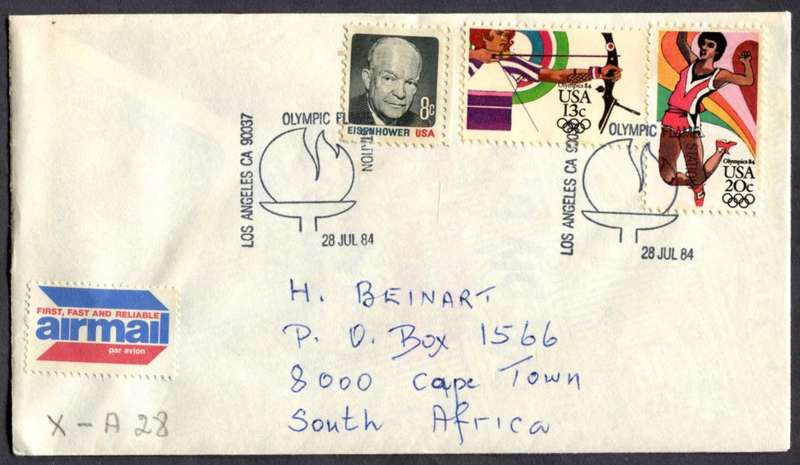 8c
EISENHOWER USA
Olympics 84
USA
13c
Olympics 84
USA
20c
OLYMPIC FLAME STATION
LOS ANGELES CA 90037
28 JUL 84
OLYMPIC FLAME STATION
LOS ANGELES CA 90037
28 JUL 84
FIRST, FAST AND RELIABLE
airmail
par avion
H. BEINART
P. O. Box 1566
8000 Cape Town
South Africa
X - A 28